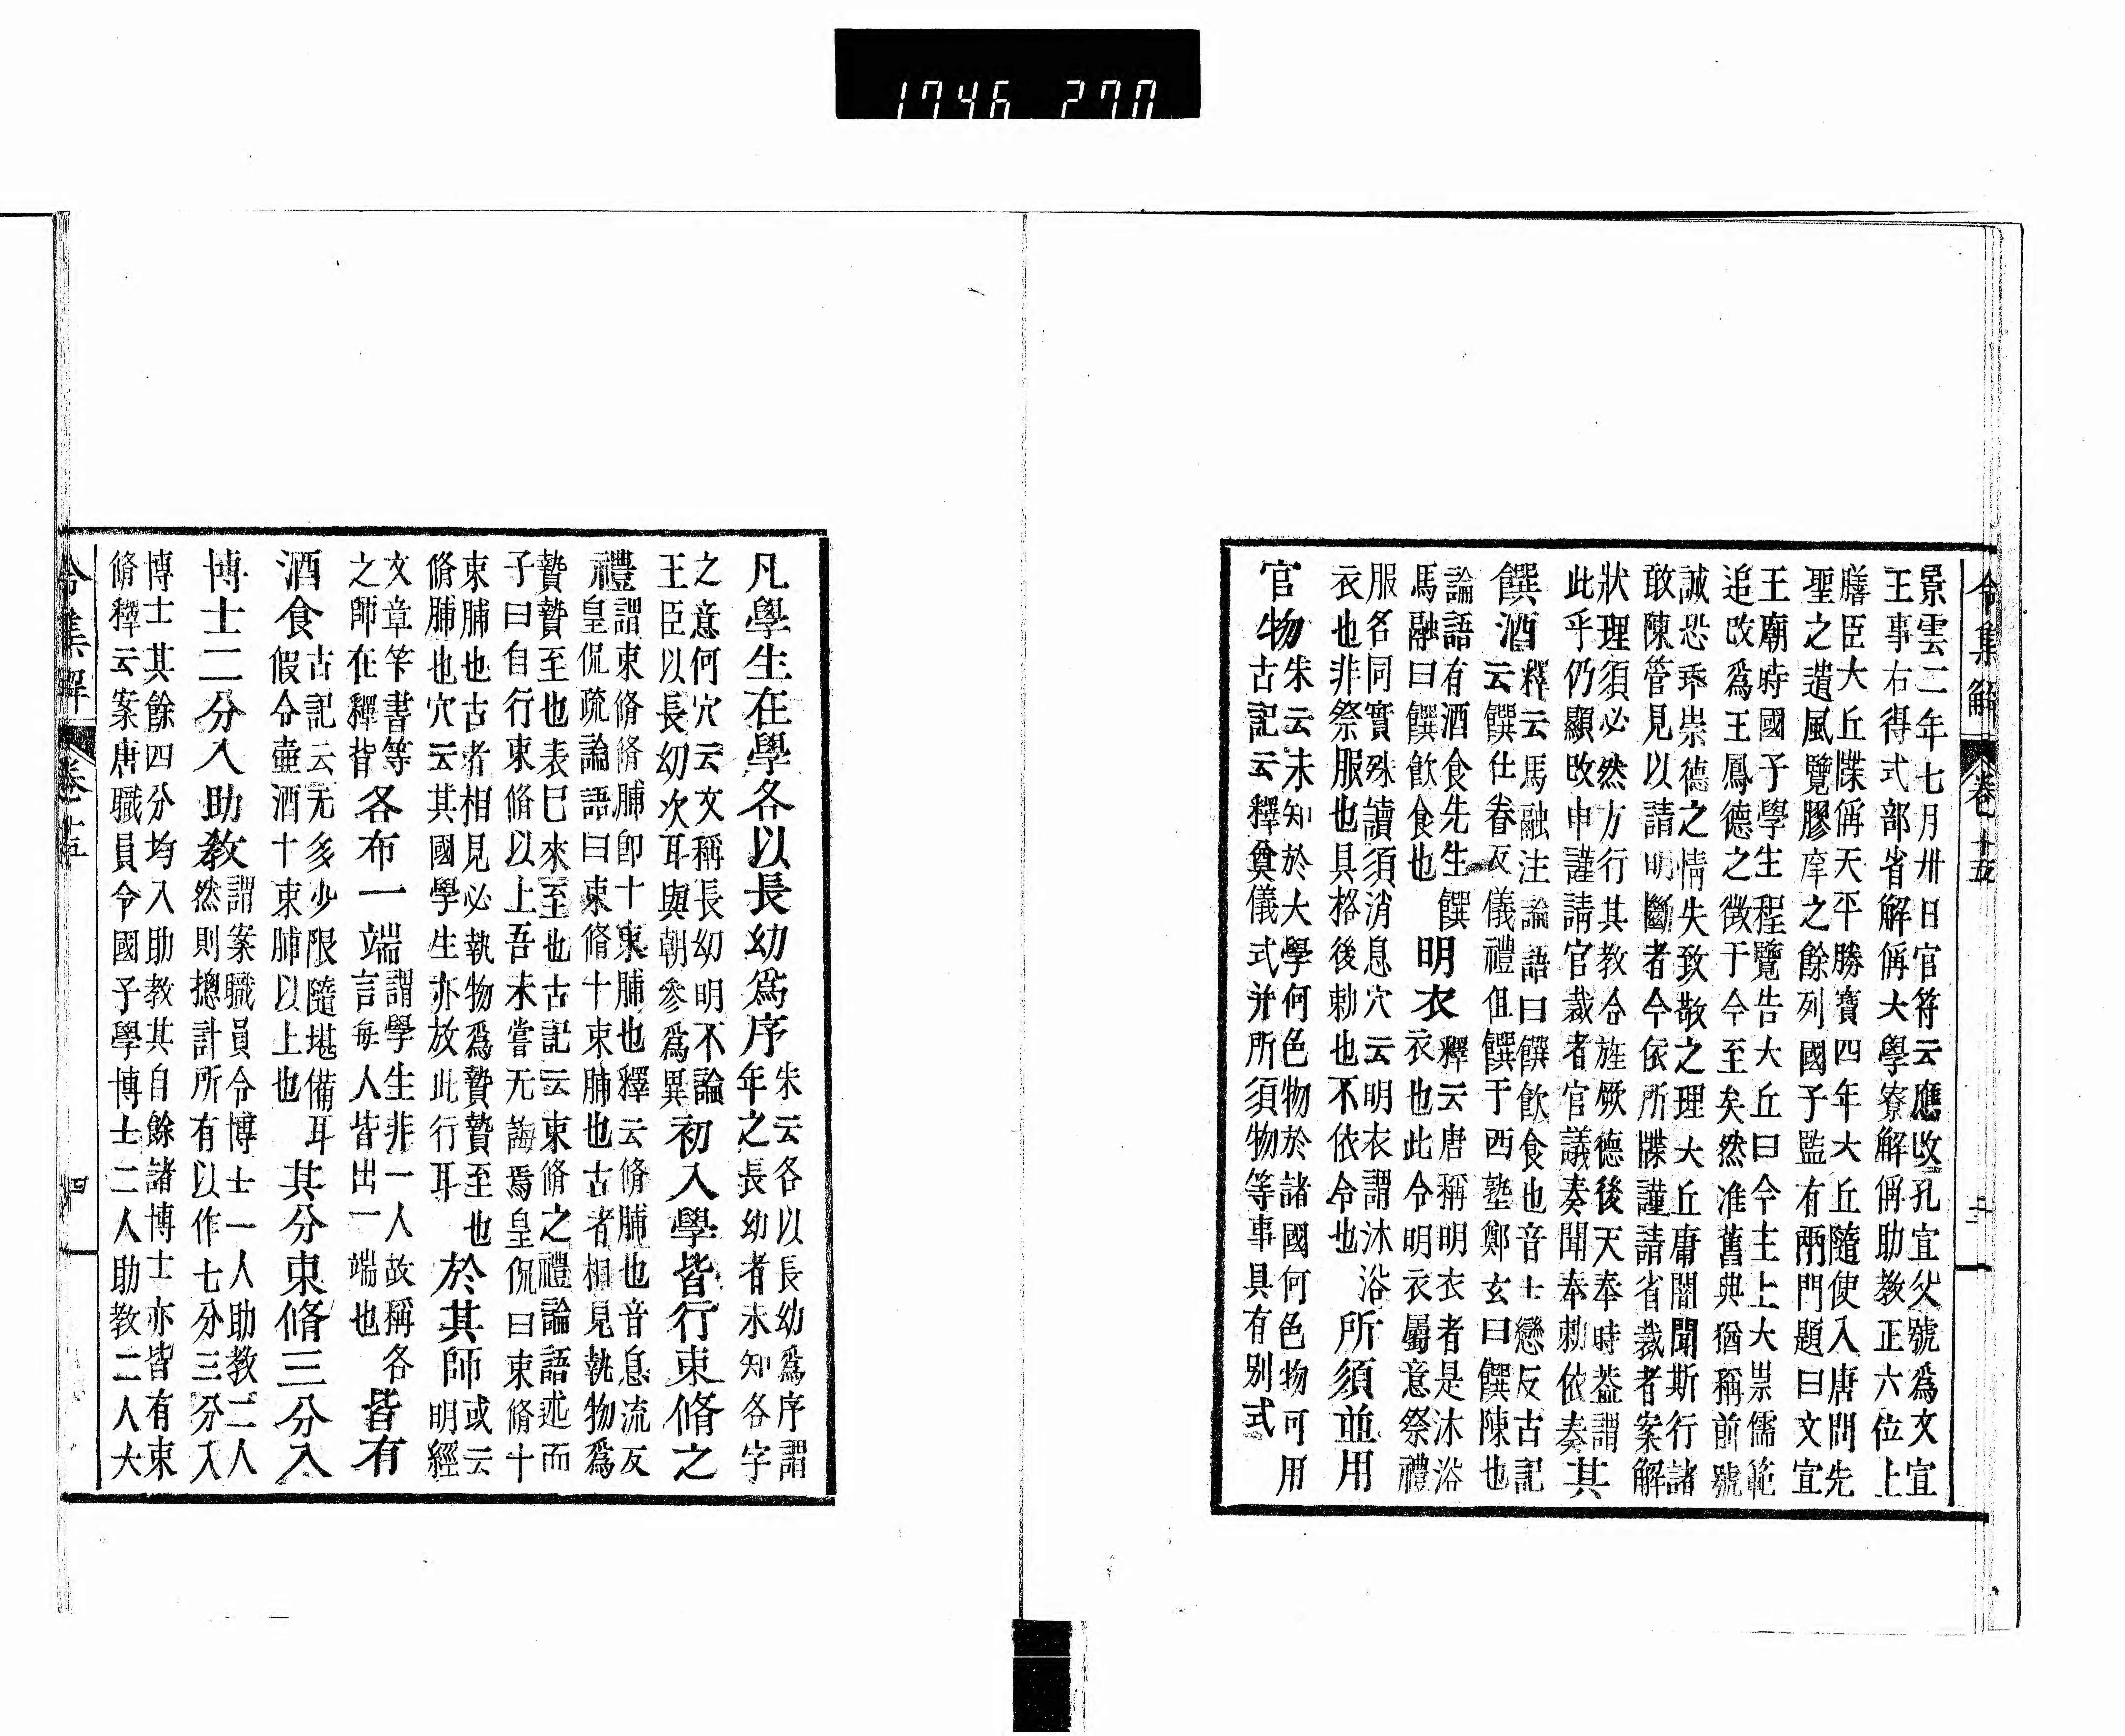 1746 270
令集解 卷十五 三
景雲二年七月卅日官符云應改孔宣父號爲文宣
王事右得式部省解偁大學寮解偁助教正六位上
膳臣大丘牒偁天平勝寶四年大丘隨使入唐問先
聖之遺風覽膠庠之餘列國子監有兩門題曰文宣
王廟時國子學生程覽告大丘曰今主上大崇儒範
追改爲王鳳德之徴于今至矣然准舊典猶稱前號
誠恐乖崇德之情失致敬之理大丘庸闇聞斯行諸
敢陳管見以請明斷者今依所牒謹請省裁者案解
狀理須必然方行其教合旌厥德後天奉時葢謂其
此乎仍顯改申謹請官裁者官議奏聞奉勅依奏
饌酒釋云馬融注論語曰饌飲食也音士戀反古記
云饌仕眷反儀禮俎饌于西塾鄭玄曰饌陳也
論語有酒食先生饌
馬融曰饌飲食也明衣釋云唐稱明衣者是沐浴
衣也此令明衣屬意祭禮
服名同實殊讀須消息穴云明衣謂沐浴
衣也非祭服也具格後勅也不依令也所須並用
官物朱云未知於大學何色物於諸國何色物可用
古記云釋奠儀式并所須物等事具有別式
凡學生在學各以長幼爲序朱云各以長幼爲序謂
年之長幼者未知各字
之意何穴云文稱長幼明不論
王臣以長幼次耳與朝參爲異初入學皆行束脩之
禮謂束脩脩脯即十束脯也釋云脩脯也音息流反
皇侃疏論語曰束脩十束脯也古者相見執物爲
贄贄至也表已來至也古記云束脩之禮論語述而
子曰自行束脩以上吾未嘗无誨焉皇侃曰束脩十
束脯也古者相見必執物爲贄贄至也
脩脯也穴云其國學生亦放此行耳於其師或云
明經
文章筭書等
之師在釋皆各布一端謂學生非一人故稱各
言每人皆出一端也皆有
酒食古記云无多少限隨堪備耳
假令壷酒十束脯以上也其分束脩三分入
博士二分入助教謂案職員令博士一人助教二人
然則摠計所有以作七分三分入
博士其餘四分均入助教其自餘諸博士亦皆有束
脩釋云案唐職員令國子學博士二人助教二人大
令集解 卷十五 四